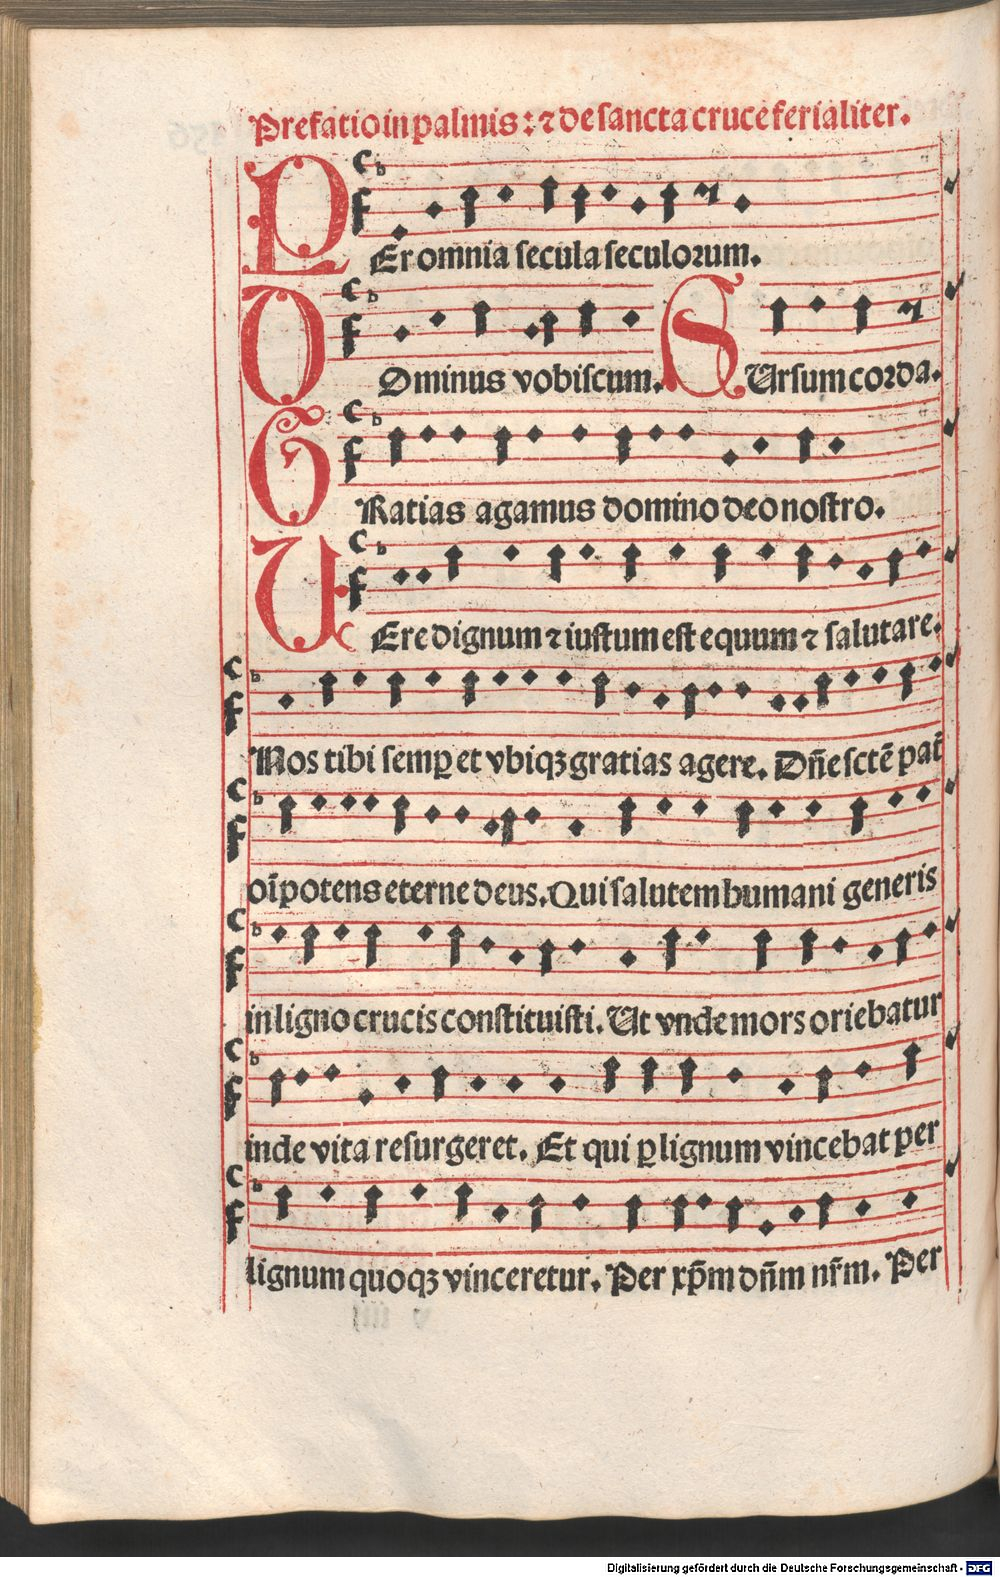 Prefatio in palmis: ⁊ de sancta cruce ferialiter.
PEr omnia secula seculoꝛum.
DOminus vobiscum. SUrsum coꝛda.
GRatias agamus domino deo nostro.
UEre dignum ⁊ iustum est equum ⁊ salutare.
Nos tibi semꝑ et vbiqꝫ gratias agere. Dn̄e sctē pat̄
oīpotens eterne deus. Qui salutem humani generis
in ligno crucis constituisti. Ut vnde mors oriebatur
inde vita resurgeret. Et qui ꝑ lignum vincebat per
lignum quoqꝫ vinceretur. Per xp̄m dn̄m nr̄m. Per
Digitalisierung gefördert durch die Deutsche Forschungsgemeinschaft - DFG